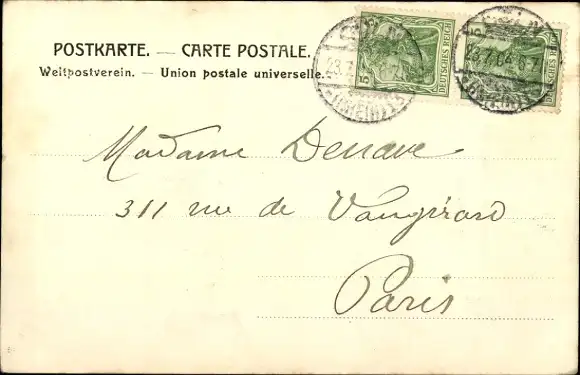 POSTKARTE. — CARTE POSTALE.
Weltpostverein. — Union postale universelle.
5
DEUTSCHES REICH
DEUTSCHES REICH
23.7.04.6-7
Madame
311 rue de Vaugirard
Paris